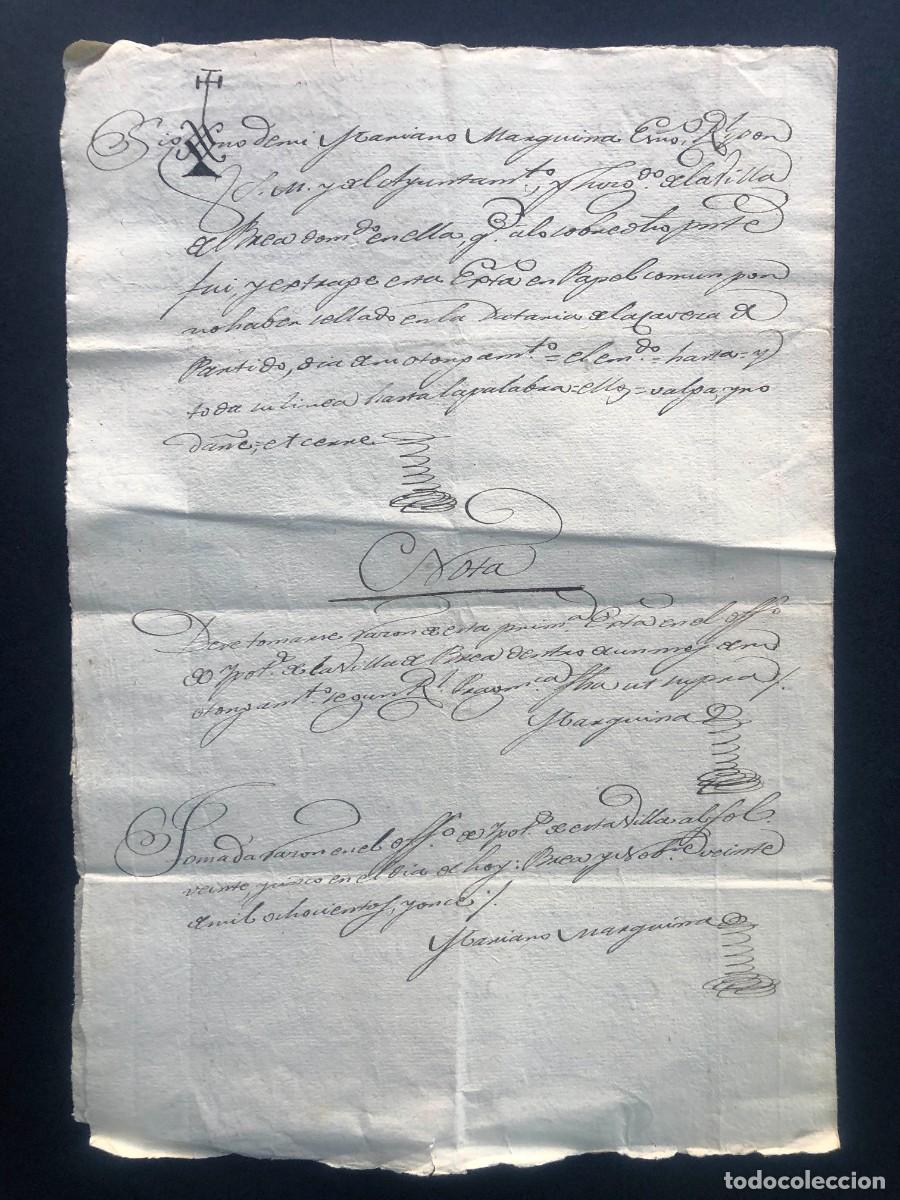 Sig no de mi Mariano Marquina Esno. Rl. por
S. M. y del Ayuntamto., y Juzgdo. de la Villa
de Brea domdo. en ella, q. a lo sobredho pnte
fui, y extraxe esta Extra en Papel comun por
no haber sellado en la Dataria de la Cavera de
Partido, dia de su otorgamto. = el emdo. = hasta = y
toda su linea hasta la palabra = ellos = valga, y no
dañe, et cerre
Nota
Deve tomarse razon de esta prima. Extra en el Offo.
de Ypot.s de la Villa de Brea dentro de un mes de su
otorgamto. segun Rl. Pragmca. fha ut supra /.
Marquina
Tomada razon en el Offo. de Ypot.s de esta Villa al fol.
veinte, y cinco en el dia de hoy: Brea y Nobre. veinte
de mil ochocientos, y once /.
Mariano Marquina
todocoleccion